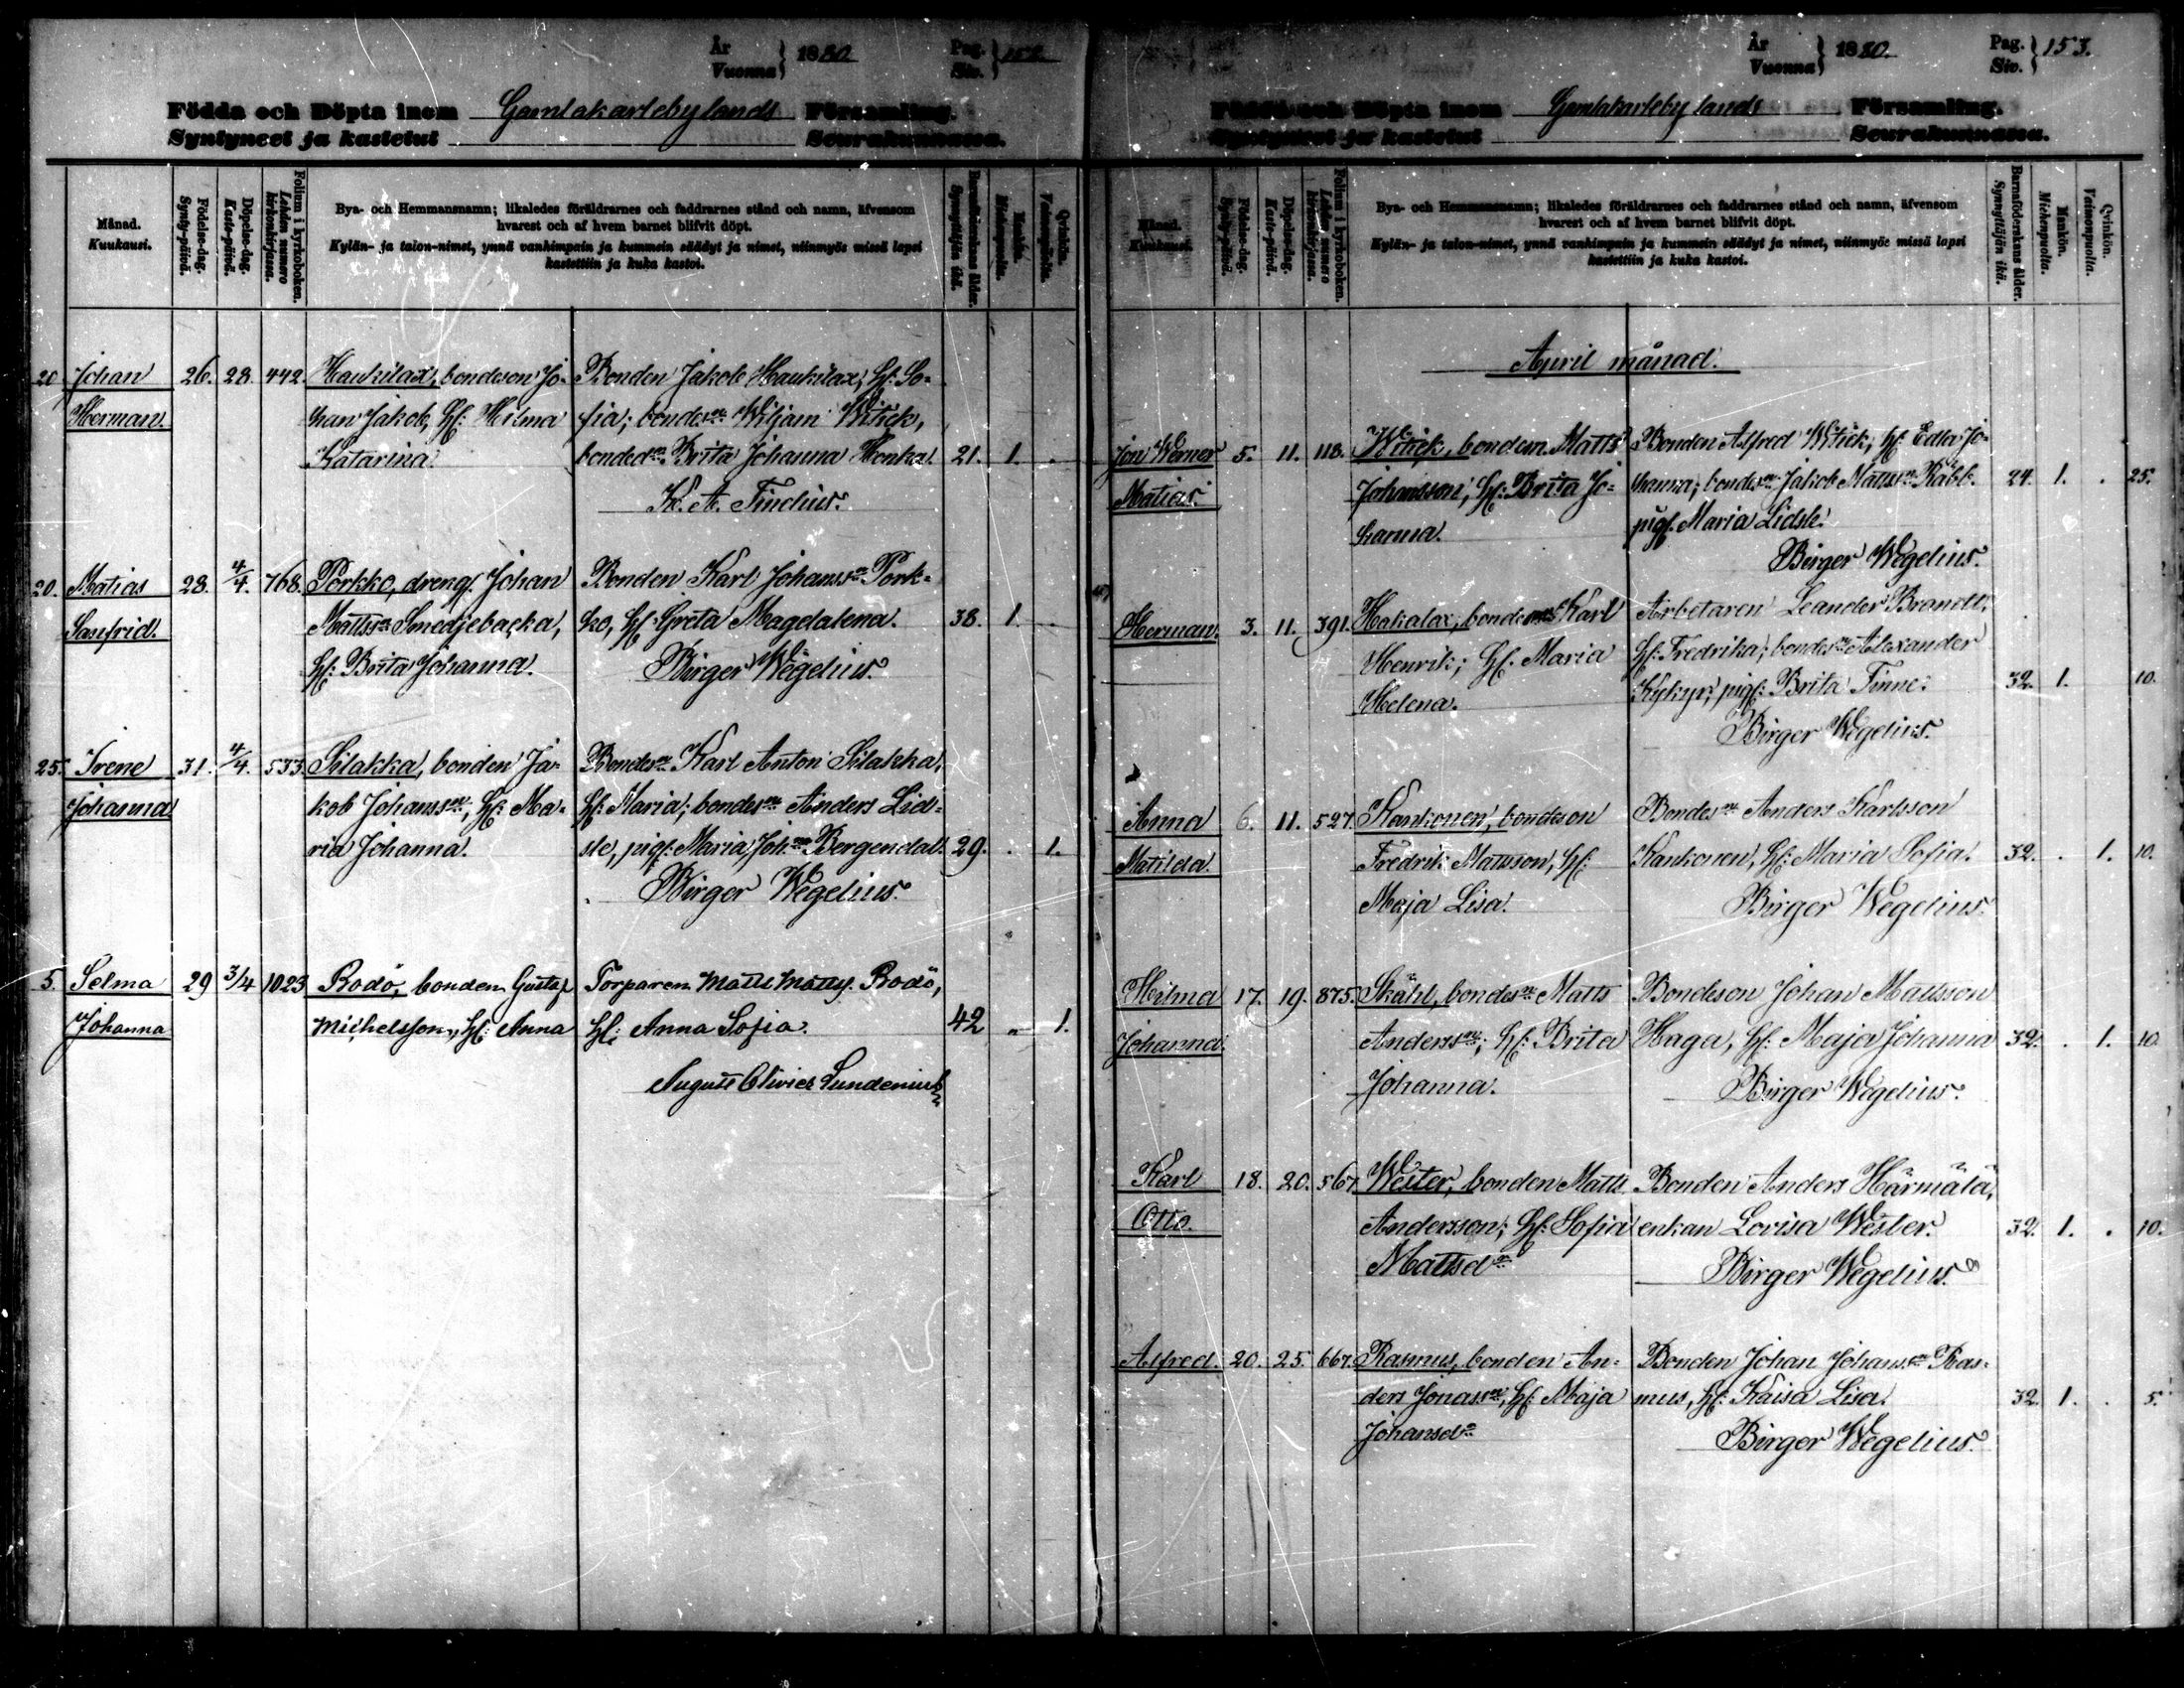 År
Vuonna } 1880
Pag.
Siv. } 152.
Födda och Döpta inom Gamlakarlebylands Församling.
Syntyneet ja kastetut Seurakunnassa.
Månad.
Kuukausi.
Födelse-dag.
Synty-päivä.
Döpelse-dag.
Kaste-päivä.
Folium i kyrkoboken.
Lehden numero
kirkonkirjassa.
Bya- och Hemmansnamn; likaledes föräldrarnes och faddrarnes stånd och namn, äfvensom
hvarest och af hvem barnet blifvit döpt.
Kylän- ja talon-nimet, ynnä vanhimpain ja kummein säädyt ja nimet, niinmyös missä lapsi
kastettiin ja kuka kastoi.
Barnföderskans ålder.
Synnyttäjän ikä.
Mankön.
Miehenpuolta.
Qvinkön.
Vaimonpuolta.
20 Johan 26. 28. 442. Haukilax, bondeson Jo- Bonden Jakob Haukilax, Hf: So-
Herman. han Jakob, Hf: Hilma fia; bondesn Wiljam Witick,
Katarina. bondedr Brita Johanna Honka. 21. 1. .
K. A. Tinelius.
20. Matias 28. 4/4. 768. Porkko, drengf. Johan Bonden Karl Johanssn Pork-
Sanfrid. Mattssn Smedjebacka, ko, Hf: Greta Magdalena. 38. 1. .
Hf: Brita Johanna. Birger Wegelius.
25. Irene 31. 4/4. 533. Silakka, bonden Ja- Bondesn Karl Anton Silakka,
Johanna kob Johanssn; Hf: Ma- Hf: Maria; bondesn Anders Lid-
ria Johanna. sle, pigf: Maria Joh. Bergendal. 29. . 1.
Birger Wegelius.
5. Selma 29 3/4 1023 Rodö, bonden Gustaf Torparen Matts Mattss. Rodö,
Johanna Michelsson, Hf: Anna Hf: Anna Sofia. 42 „ 1.
August Olivier Sundenius
År
Vuonna } 1880.
Pag.
Siv. } 153.
Födda och Döpta inom Gamlakarleby lands Församling.
Syntyneet ja kastetut Seurakunnassa.
Månad.
Kuukausi.
Födelse-dag.
Synty-päivä.
Döpelse-dag.
Kaste-päivä.
Folium i kyrkoboken.
Lehden numero
kirkonkirjassa.
Bya- och Hemmansnamn; likaledes föräldrarnes och faddrarnes stånd och namn, äfvensom
hvarest och af hvem barnet blifvit döpt.
Kylän- ja talon-nimet, ynnä vanhimpain ja kummein säädyt ja nimet, niinmyös missä lapsi
kastettiin ja kuka kastoi.
Barnföderskans ålder.
Synnyttäjän ikä.
Mankön.
Miehenpuolta.
Qvinkön.
Vaimonpuolta.
April månad.
Jon Werner 5. 11. 118. Witick, bondesn. Matts Bonden Alfred Witick; Hf: Edla Jo-
Matias. Johansson, Hf: Brita Jo- hanna; bondesn Jakob Mattssn Rabb. 24. 1. . 25.
hanna. pigf. Maria Lidsle.
Birger Wegelius.
Herman. 3. 11. 391. Hakalax, bonden Karl Arbetaren Leander Brandt,
Henrik; Hf: Maria Hf: Fredrika; bondesn Alexander
Helena. Kykyri, pigf: Brita Finne. 32. 1. 10.
Birger Wegelius.
Anna 6. 11. 527. Kankonen, bondeson Bondesn Anders Karlsson
Matilda. Fredrik Mattsson, Hf: Kankonen, Hf: Maria Sofia. 32. . 1. 10.
Maja Lisa. Birger Wegelius.
Hilma 17. 19. 875. Skåhl, bondesn Matts Bondeson Johan Mattsson
Johanna. Anderssn; Hf: Brita Haga, Hf: Maja Johanna 32. . 1. 10
Johanna. Birger Wegelius.
Karl 18. 20. 567. Wester, bonden Matts Bonden Anders Härmälä,
Otto. Andersson; Hf: Sofia enkan Lovisa Wester. 32. 1. . 10.
Mattsdr Birger Wegelius.
Alfred. 20. 25. 667. Rasmus, bonden An- Bonden Johan Johanssn Ras-
ders Jonassn, Hf: Maja mus, Hf: Kaisa Lisa. 32. 1. . 5.
Johansdr Birger Wegelius.